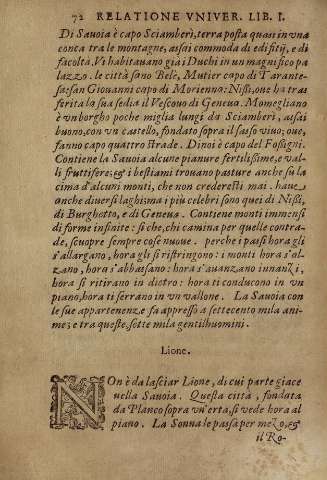 72 RELATIONE VNIVER. LIB. I.
Di Sauoia è capo Sciamberì, terra posta quasi in vna
conca tra le montagne, assai commoda di edifitij, e di
facoltà. Vi habitauano già i Duchi in un magnifico pa
lazzo. le città sono Belè, Mutier capo di Tarante-
sa: san Giouanni capo di Morienna: Nisi, oue ha tras
ferita la sua sedia il Vescouo di Geneua. Momegliano
è vn borgho poche miglia lungi da Sciamberi, assai
buono, con vn castello, fondato sopra il sasso viuo; oue,
fanno capo quattro strade. Dinoi è capo del Fossigni.
Contiene la Sauoia alcune pianure fertilissime, e val-
li fruttifere; & i bestiami trouano pasture anche sù la
cima d'alcuni monti, che non crederesti mai. haue
anche diuersi laghi: ma i più celebri sono quei di Nisi,
di Burghotto, e di Geneua. Contiene monti immensi
di forme infinite: si che, chi camina per quelle contra-
de, scuopre sempre cose nuoue. perche i passi hora gli
s'allargano, hora gli si ristringono: i monti hora s'al-
zano, hora s'abbassano: hora s'auanzano innanzi,
hora si ritirano in dietro: hora ti conducono in vn
piano, hora ti serrano in vn vallone. La Sauoia con
le sue appartenenze fa appresso a settecento mila ani-
me; e tra queste, sette mila gentilhuomini.
Lione.
NOn è da lasciar Lione, di cui parte giace
nella Sauoia. Questa città, fondata
da Planco sopra vn'erta, si vede hora al
piano. La Sonna le passa per mezo, &
il Ro-